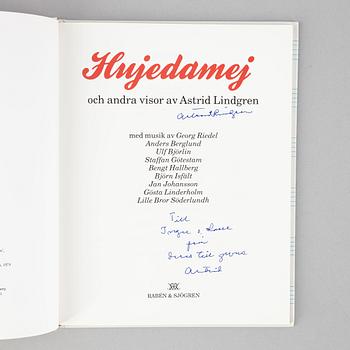 Hujedamej
och andra visor av Astrid Lindgren
Astrid Lindgren
med musik av Georg Riedel
Anders Berglund
Ulf Björlin
Staffan Götestam
Bengt Hallberg
Björn Isfält
Jan Johansson
Gösta Linderholm
Lille Bror Söderlundh
Till
från
Astrid
RABÉN & SJÖGREN